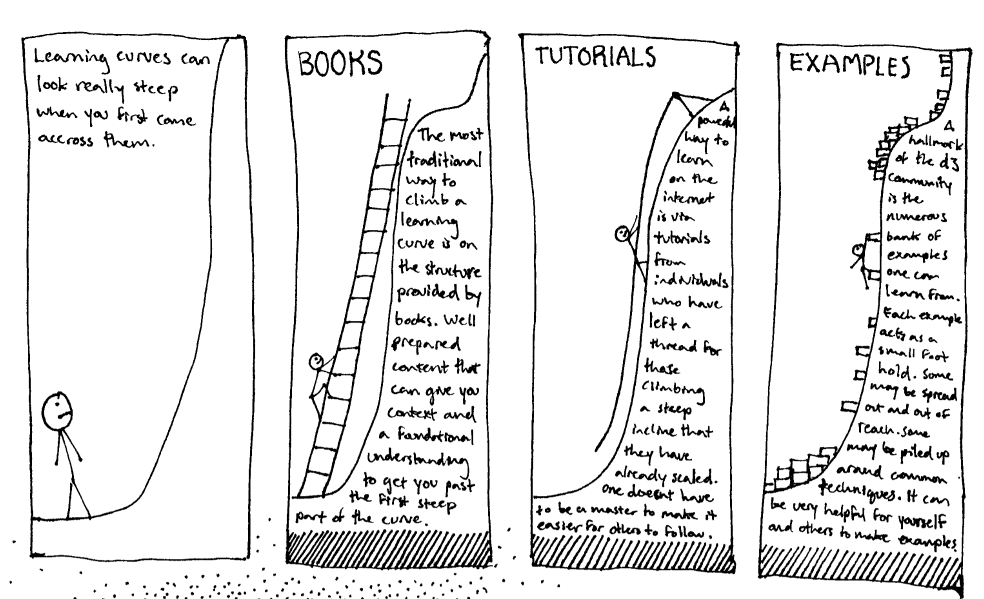 Learning curves can
look really steep
when you first come
accross them.
BOOKS
The most
traditional
way to
climb a
learning
curve is on
the structure
provided by
books. Well
prepared
content that
can give you
context and
a foundational
understanding
to get you past
the first steep
part of the curve.
TUTORIALS
A
powerful
way to
learn
on the
internet
is via
tutorials
from
individuals
who have
left a
thread for
those
climbing
a steep
incline that
they have
already scaled.
One doesnt have
to be a master to make it
easier for others to follow.
EXAMPLES
A
hallmark
of the d3
community
is the
numerous
bank of
examples
one can
learn from.
Each example
acts as a
small foot
hold. Some
may be spread
out and out of
reach. Some
may be piled up
around common
techniques. It can
be very helpful for yourself
and others to make examples